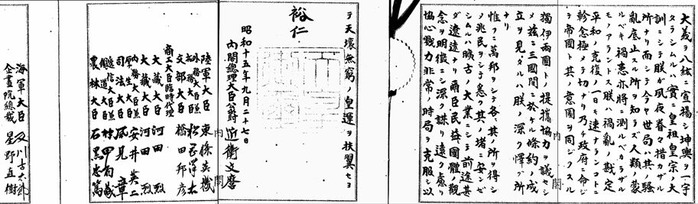 大義ヲ八紘ニ宣揚シ坤輿ヲ一宇
タラシムルハ實ニ皇祖皇宗ノ大
訓ニシテ朕ガ夙夜眷々措カザル
所ナリ而シテ今ヤ世局ハ其ノ騷
亂底止スル所ヲ知ラズ人類ノ蒙
ルベキ禍患亦將ニ測ルベカラザル
モノアラントス朕ハ禍亂ノ戡定
平和ノ克復ノ一日モ速ナランコトニ
軫念極メテ切ナリ乃チ政府ニ命ジ
テ帝國ト其ノ意圖ヲ同ジクスル
獨伊兩國トノ提攜協力ヲ議セシ
メ茲ニ三國間ニ於ケル條約ノ成
立ヲ見タルハ朕ノ深ク懌ブ所
ナリ
惟フニ萬邦ヲシテ各〻其ノ所ヲ得シ
メ兆民ヲシテ悉ク其ノ堵ニ安ンゼ
シムルハ曠古ノ大業ニシテ前途甚
ダ遼遠ナリ爾臣民益〻國體ノ觀
念ヲ明徵ニシ深ク謀リ遠ク慮リ
協心戮力非常ノ時局ヲ克服シ以
テ天壤無窮ノ皇運ヲ扶翼セヨ
裕仁
昭和十五年九月二十七日
内閣總理大臣公爵 近衞文麿
陸軍大臣 東條英機
松岡洋右
文部大臣 橋田邦彦
大藏大臣 河田烈
大藏大臣 河田烈
安井英二
司法大臣 風見章
農林大臣 石黒忠篤
海軍大臣 及川古志郎
企畫院總裁 星野直樹